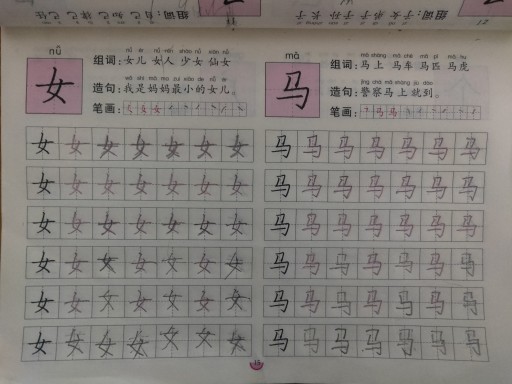 nǚ
女
nǚ ér nǚ rén shào nǚ xiān nǚ
组词：女儿 女人 少女 仙女
wǒ shì mā ma zuì xiǎo de nǚ ér
造句：我是妈妈最小的女儿。
笔画：
女 女 女 女 女 女 女
女 女 女 女 女 女 女
女 女 女 女 女 女 女
女 女 女 女 女 女 女
女 女 女 女 女 女 女
女 女 女 女 女 女 女
mǎ
马
mǎ shàng mǎ chē mǎ pǐ mǎ hu
组词：马上 马车 马匹 马虎
jǐng chá mǎ shàng jiù dào
造句：警察马上就到。
笔画：
马 马 马 马 马 马 马
马 马 马 马 马 马 马
马 马 马 马 马 马 马
马 马 马 马 马 马 马
马 马 马 马 马 马 马
马 马 马 马 马 马 马